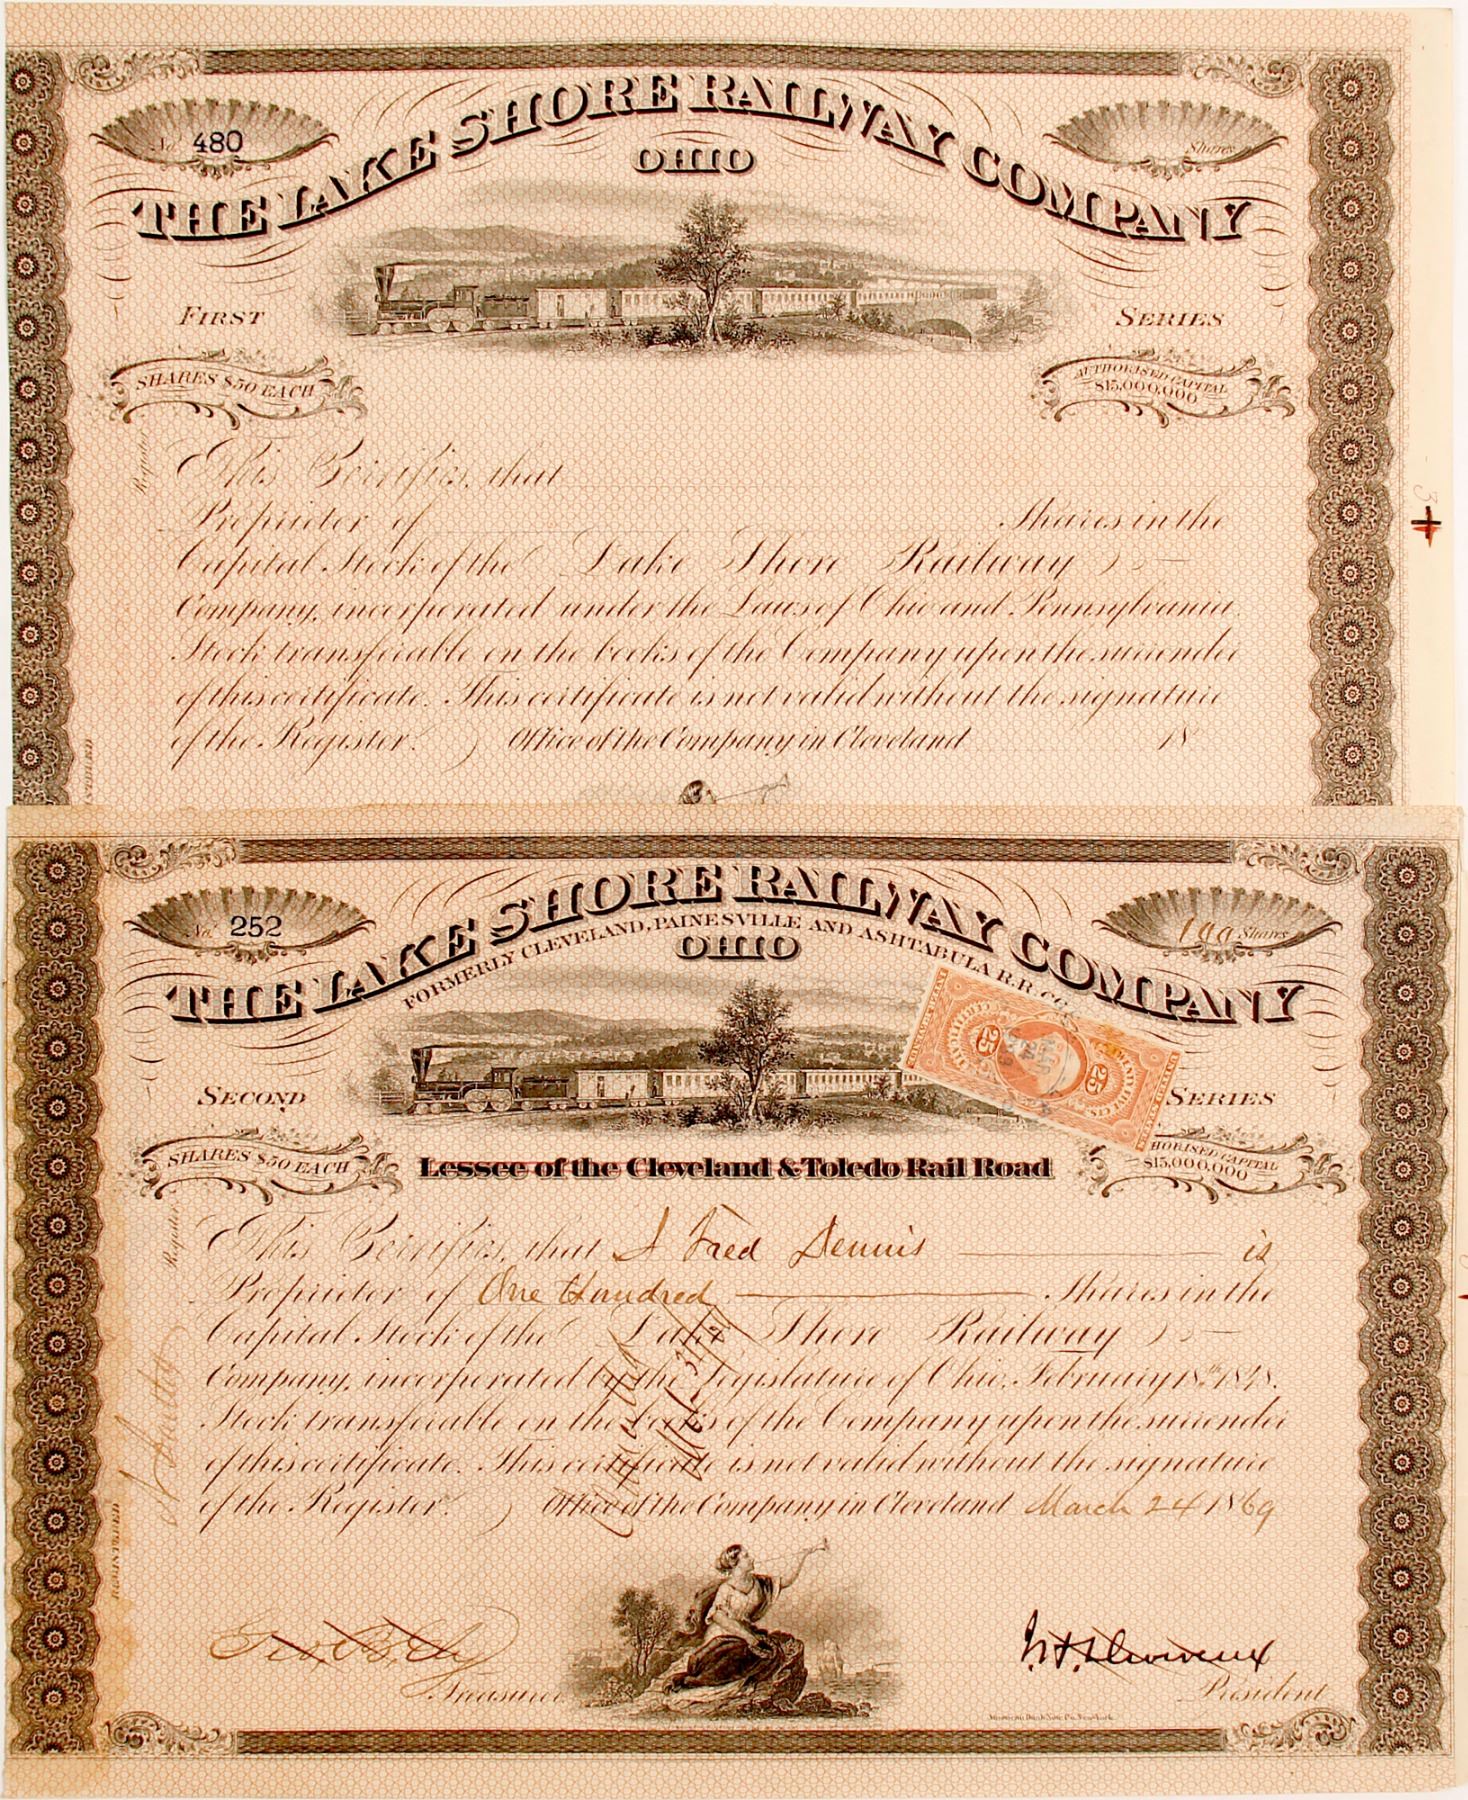 THE LAKE SHORE RAILWAY COMPANY
OHIO
No. 480
Shares
FIRST SERIES
SHARES $50 EACH
AUTHORISED CAPITAL
$15,000,000
Register
This Certifies, that
Proprietor of Shares in the
Capital Stock of the Lake Shore Railway
Company, incorporated under the Laws of Ohio and Pennsylvania.
Stock transferable on the books of the Company upon the surrender
of this certificate. This certificate is not valid without the signature
of the Register. Office of the Company in Cleveland 18
3
THE LAKE SHORE RAILWAY COMPANY
FORMERLY CLEVELAND, PAINESVILLE AND ASHTABULA R.R. Co.
OHIO
No. 252
100 Shares
SECOND SERIES
25 25
SHARES $50 EACH
HORISED CAPITAL
$15,000,000
Lessee of the Cleveland & Toledo Rail Road
Register
This Certifies, that J Fred Dennis is
Proprietor of One Hundred Shares in the
Capital Stock of the Lake Shore Railway
Company, incorporated by the Legislature of Ohio, February 18th 1848.
Stock transferable on the books of the Company upon the surrender
of this certificate. This certificate is not valid without the signature
of the Register. Office of the Company in Cleveland March 24 1869
Cancelled
Mch 31/69
REGISTERED
Geo. B. Ely
Treasurer
President
American Bank Note Co. New York